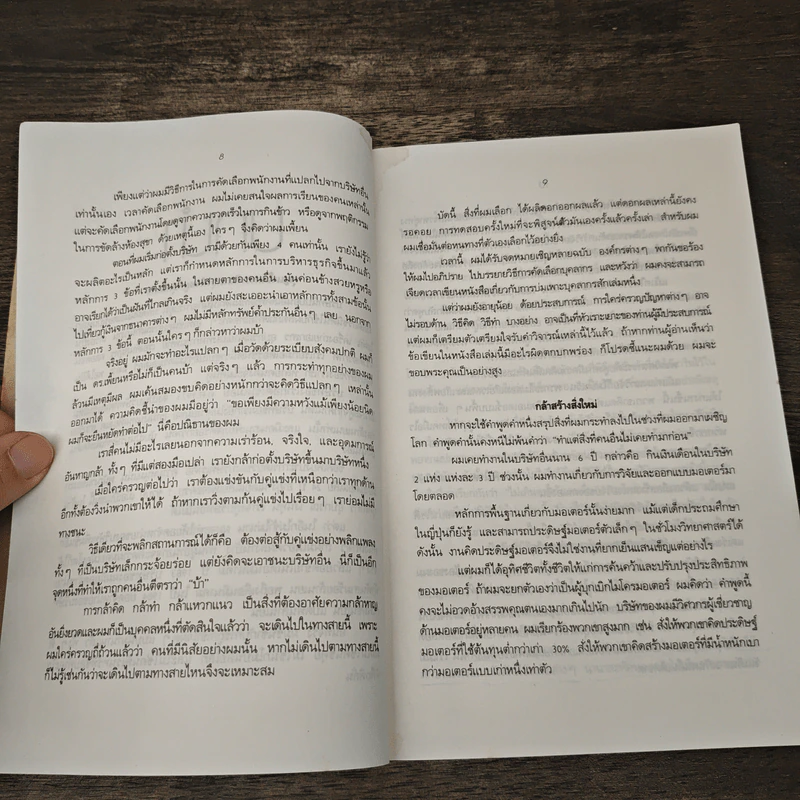 8
เพียงแต่ว่าผมมีวิธีการในการคัดเลือกพนักงานที่แปลกไปจากบริษัทอื่น
เท่านั้นเอง เวลาคัดเลือกพนักงาน ผมไม่เคยสนใจผลการเรียนของคนเหล่านั้น
แต่จะคัดเลือกพนักงานโดยดูจากความรวดเร็วในการกินข้าว หรือดูจากพฤติกรรม
ในการขัดล้างห้องสุขา ด้วยเหตุนี้เอง ใครๆ จึงคิดว่าผมเพี้ยน
ตอนที่ผมเริ่มก่อตั้งบริษัท เรามีด้วยกันเพียง 4 คนเท่านั้น เรายังไม่รู้ว่า
จะผลิตอะไรเป็นหลัก แต่เราก็กำหนดหลักการในการบริหารธุรกิจขึ้นมาแล้ว
หลักการ 3 ข้อที่เราตั้งขึ้นนั้น ในสายตาของคนอื่น มันค่อนข้างสวยหรูหรือ
อาจเรียกได้ว่าเป็นฝันที่ไกลเกินจริง แต่ผมยังสะเออะนำเอาหลักการทั้งสามข้อนั้น
ไปเที่ยวกู้เงินจากธนาคารต่างๆ ผมไม่มีหลักทรัพย์ค้ำประกันอื่นๆ เลย นอกจาก
หลักการ 3 ข้อนี้ ตอนนั้นใครๆ ก็กล่าวหาว่าผมบ้า
จริงอยู่ ผมมักจะทำอะไรแปลกๆ เมื่อวัดด้วยระเบียบสังคมปกติ ผมก็
เป็น ดร.เพี้ยนหรือไม่ก็เป็นคนบ้า แต่จริงๆ แล้ว การกระทำทุกอย่างของผม
ล้วนมีเหตุมีผล ผมเค้นสมองขบคิดอย่างหนักกว่าจะคิดวิธีแปลกๆ เหล่านั้น
ออกมาได้ ความคิดชี้นำของผมมีอยู่ว่า "ขอเพียงมีความหวังแม้เพียงน้อยนิด
ผมก็จะยืนหยัดทำต่อไป" นี่คือปณิธานของผม
เราสี่คนไม่มีอะไรเลยนอกจากความเร่าร้อน, จริงใจ, และอุดมการณ์
อันหาญกล้า ทั้งๆ ที่มีแต่สองมือเปล่า เรายังกล้าก่อตั้งบริษัทขึ้นมาบริษัทหนึ่ง
เมื่อใคร่ครวญต่อไปว่า เราต้องแข่งขันกับคู่แข่งที่เหนือกว่าเราทุกด้าน
อีกทั้งต้องวิ่งนำพวกเขาให้ได้ ถ้าหากเราวิ่งตามก้นคู่แข่งไปเรื่อยๆ เราย่อมไม่มี
ทางชนะ
วิธีเดียวที่จะพลิกสถานการณ์ได้ก็คือ ต้องต่อสู้กับคู่แข่งอย่างพลิกแพลง
ทั้งๆ ที่เป็นบริษัทเล็กกระจ้อยร่อย แต่ยังคิดจะเอาชนะบริษัทอื่น นี่ก็เป็นอีก
จุดหนึ่งที่ทำให้เราถูกคนอื่นตีตราว่า "บ้า"
การกล้าคิด กล้าทำ กล้าแหวกแนว เป็นสิ่งที่ต้องอาศัยความกล้าหาญ
อันยิ่งยวดและผมก็เป็นบุคคลหนึ่งที่ตัดสินใจแล้วว่า จะเดินไปในทางสายนี้ เพราะ
ผมใคร่ครวญถี่ถ้วนแล้วว่า คนที่มีนิสัยอย่างผมนั้น หากไม่เดินไปตามทางสายนี้
ก็ไม่รู้เช่นกันว่าจะเดินไปตามทางสายไหนจึงจะเหมาะสม
9
บัดนี้ สิ่งที่ผมเลือก ได้ผลิดอกออกผลแล้ว แต่ดอกผลเหล่านี้ยังคง
รอคอย การทดสอบครั้งใหม่ที่จะพิสูจน์ตัวมันเองครั้งแล้วครั้งเล่า สำหรับผม
ผมเชื่อมั่นต่อหนทางที่ตัวเองเลือกไว้อย่างยิ่ง
เวลานี้ ผมได้รับจดหมายเชิญหลายฉบับ องค์กรต่างๆ พากันขอร้อง
ให้ผมไปอภิปราย ไปบรรยายวิธีการคัดเลือกบุคลากร และหวังว่า ผมคงจะสามารถ
เจียดเวลาเขียนหนังสือเกี่ยวกับการบ่มเพาะบุคลากรสักเล่มหนึ่ง
แต่ว่าผมยังอายุน้อย ด้อยประสบการณ์ การใคร่ครวญปัญหาต่างๆ อาจ
ไม่รอบด้าน วิธีคิด วิธีทำ บางอย่าง อาจเป็นที่หัวเราะเยาะของท่านผู้มีประสบการณ์
แต่ผมก็เตรียมตัวเตรียมใจรับคำวิจารณ์เหล่านี้ไว้แล้ว ถ้าหากท่านผู้อ่านเห็นว่า
ข้อเขียนในหนังสือเล่มนี้มีอะไรผิดตกบกพร่อง ก็โปรดชี้แนะผมด้วย ผมจะ
ขอบพระคุณเป็นอย่างสูง
กล้าสร้างสิ่งใหม่
หากจะใช้คำพูดคำหนึ่งสรุปสิ่งที่ผมกระทำลงไปในช่วงที่ผมออกมาเผชิญ
โลก คำพูดคำนั้นคงหนีไม่พ้นคำว่า "ทำแต่สิ่งที่คนอื่นไม่เคยทำมาก่อน"
ผมเคยทำงานในบริษัทอื่นนาน 6 ปี กล่าวคือ กินเงินเดือนในบริษัท
2 แห่ง แห่งละ 3 ปี ช่วงนั้น ผมทำงานเกี่ยวกับการวิจัยและออกแบบมอเตอร์มา
โดยตลอด
หลักการพื้นฐานเกี่ยวกับมอเตอร์นั้นง่ายมาก แม้แต่เด็กประถมศึกษา
ในญี่ปุ่นก็ยังรู้ และสามารถประดิษฐ์มอเตอร์ตัวเล็กๆ ในชั่วโมงวิทยาศาสตร์ได้
ดังนั้น งานคิดประดิษฐ์มอเตอร์จึงไม่ใช่งานที่ยากเย็นแสนเข็ญแต่อย่างไร
แต่ผมก็ได้อุทิศชีวิตทั้งชีวิตให้แก่การค้นคว้าและปรับปรุงประสิทธิภาพ
ของมอเตอร์ ถ้าผมจะยกตัวเองว่าเป็นผู้บุกเบิกไมโครมอเตอร์ ผมคิดว่า คำพูดนี้
คงจะไม่อวดอ้างสรรพคุณตนเองมากเกินไปนัก บริษัทของผมมีวิศวกรผู้เชี่ยวชาญ
ด้านมอเตอร์อยู่หลายคน ผมเรียกร้องพวกเขาสูงมาก เช่น สั่งให้พวกเขาคิดประดิษฐ์
มอเตอร์ที่ใช้ต้นทุนต่ำกว่าเก่า 30% สั่งให้พวกเขาคิดสร้างมอเตอร์ที่มีน้ำหนักเบา
กว่ามอเตอร์แบบเก่าหนึ่งเท่าตัว